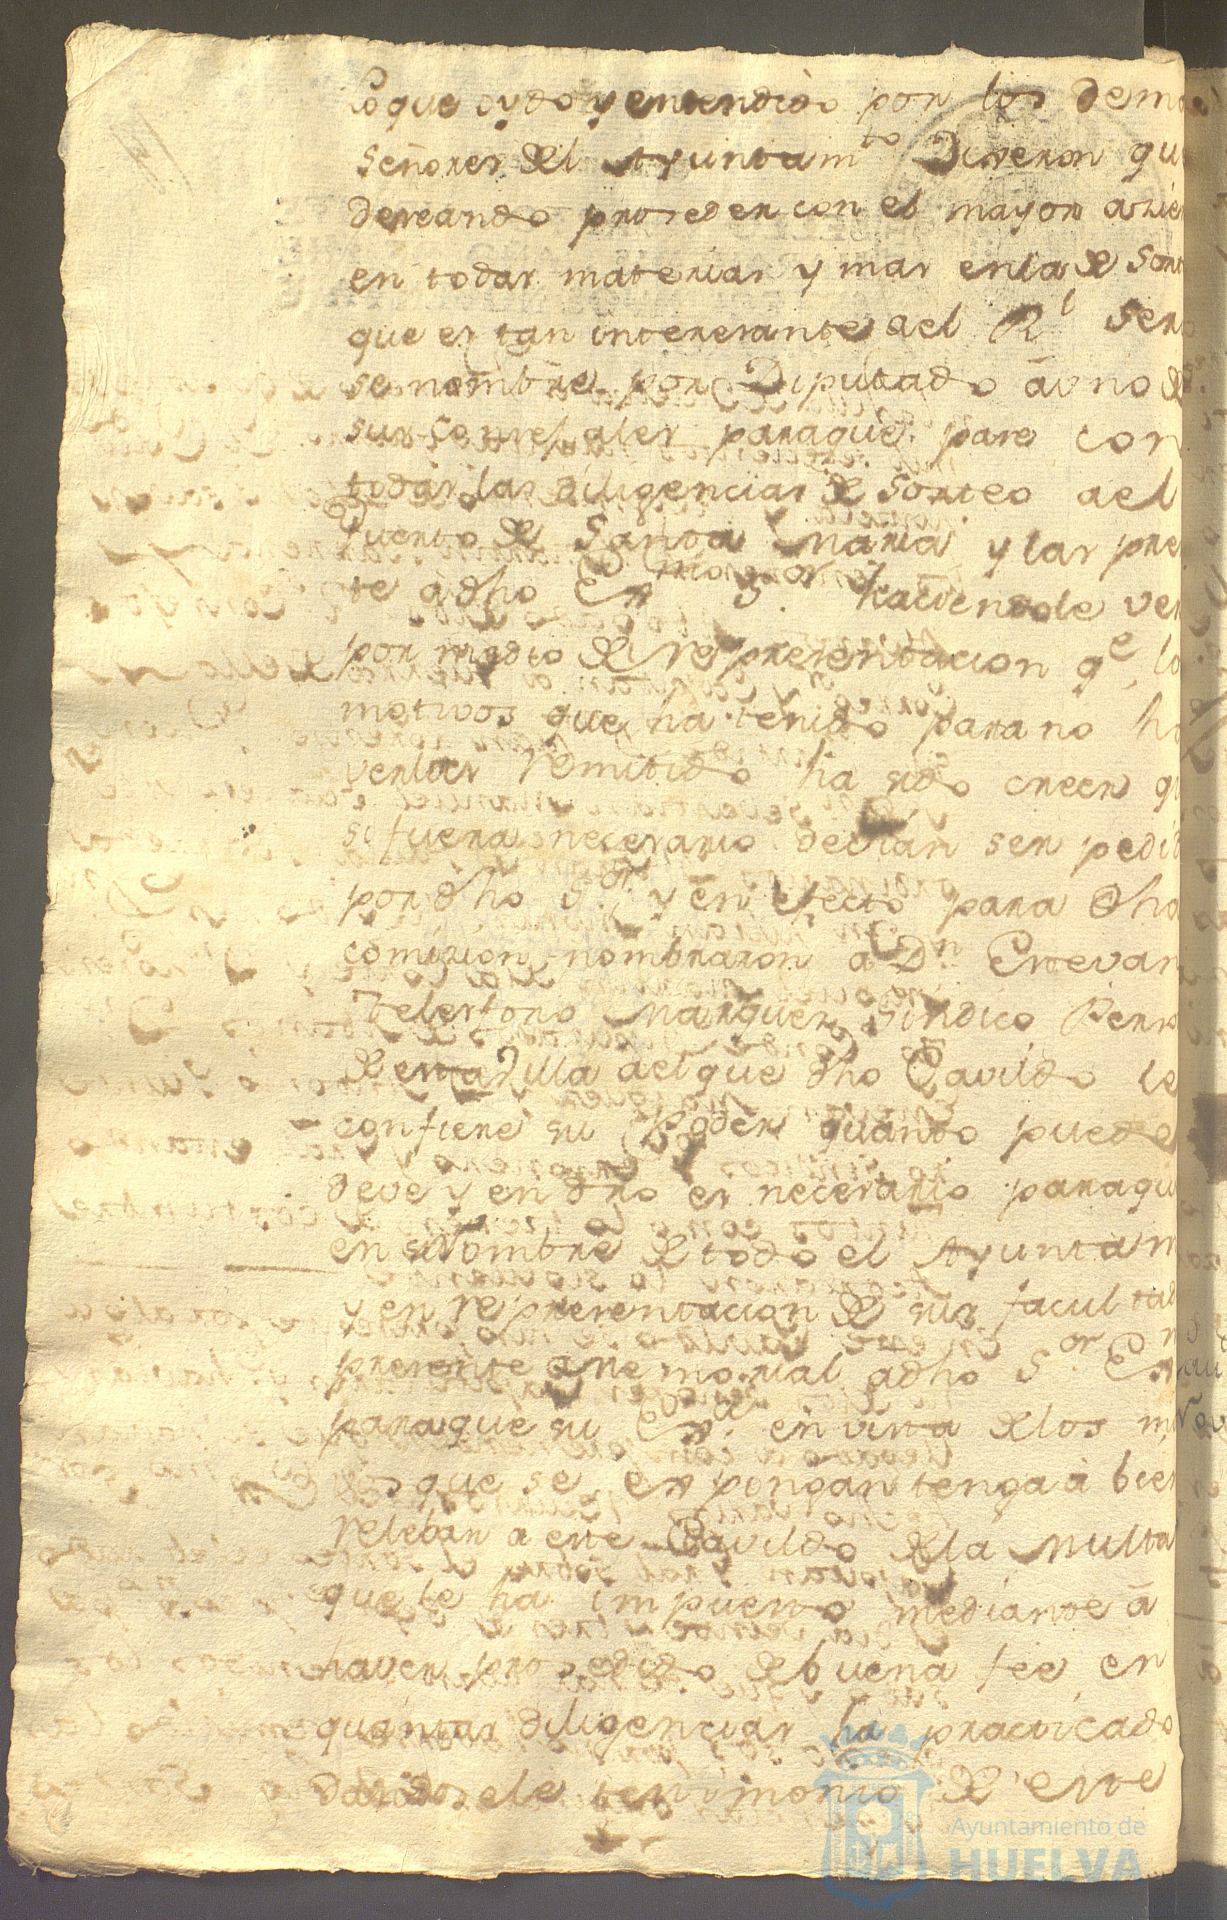 lo que oydo y entendido por los dema
Señores del Ayuntam.to Dixeron qu
deseando proseder con el mayor asier
en todas materias y mas en la de Sort
que es tan interesante al R.l Serv
se nombre por Diputado á uno de
sus Conse, ales paraque pase con
todas las diligencias de Sorteo al
Puerto de Santa Maria y las pre
te a dho Ex.mo S.or haciendole ver
por medio de representacion q.e lo
motivos que ha tenido para no ha
verlas remitido ha sido creer qu
si fuera necesario devian ser pedid
por dho S.or y en efecto para dha
comision nombraron a D.n Estevan
Telesforo Marquez Sindico Perso
de esta Villa al que dho Cavildo le
confiere su Poder quanto puede
deve y en dro es necesario paraqu
en su Nombre de todo el Ayuntam
y en representacion de sus facultad
presente este memorial adho S.or Ex.mo
paraque su Ex.a en vista de los m
os que se expongan tenga á bien
relebar a este Cavildo de la Multa
que le ha impuesto mediante á
haver prosedido de buena fee en
quantas diligencias ha practicado
dandosele testimonio de este
Ayuntamiento de
HUELVA